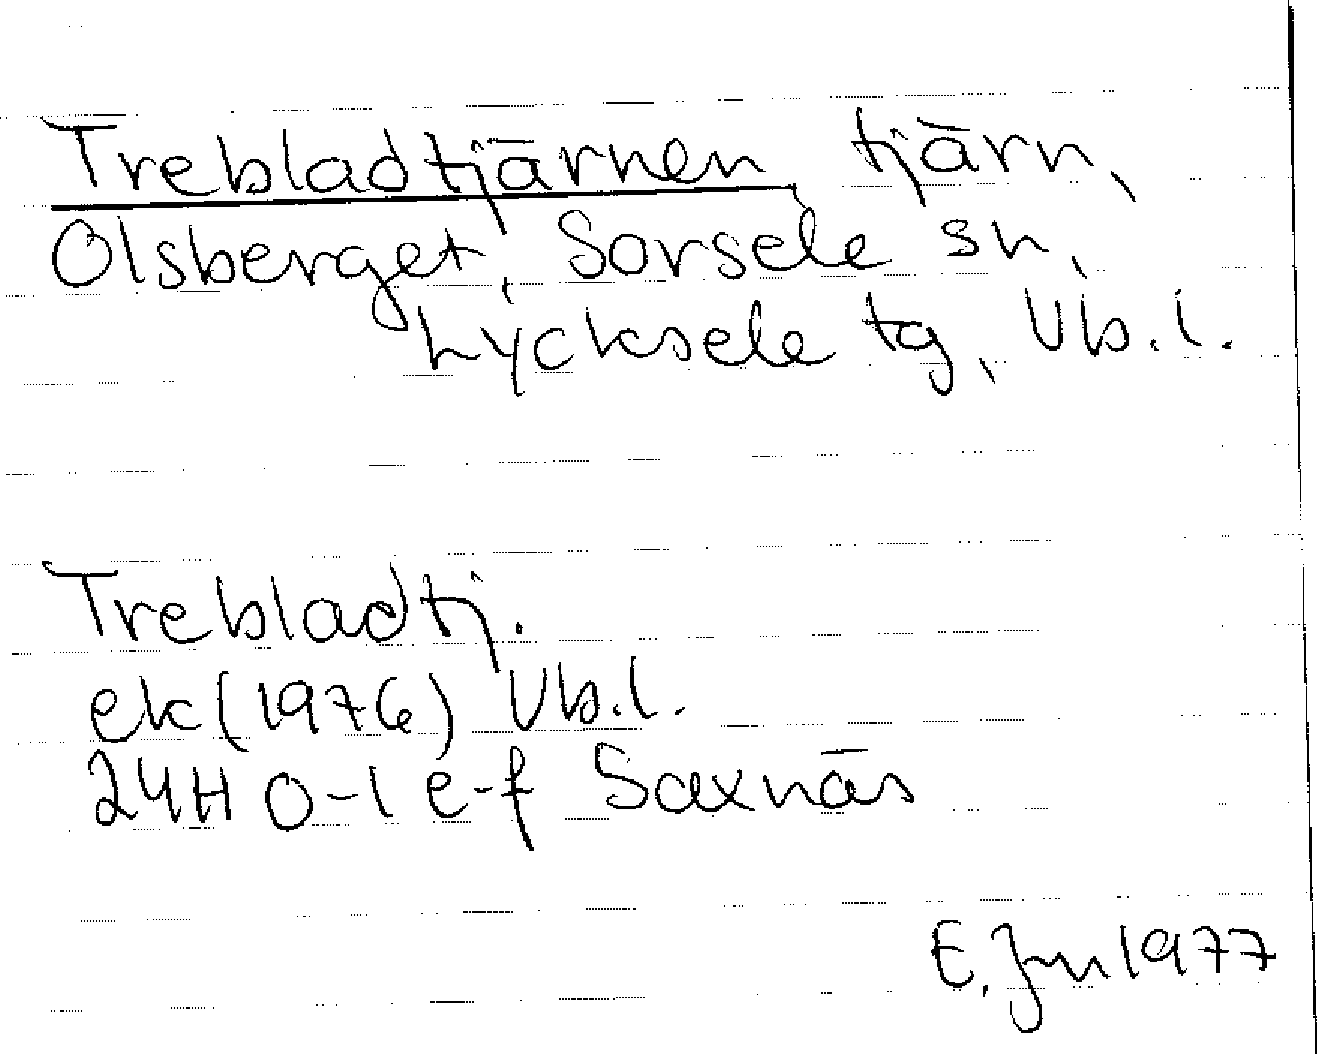 Trebladtjärnen, tjärn,
Olsberget, Sorsele sn,
Lycksele tg, Vb.l.
Trebladtj.
ek (1976) Vb.l.
24H 0-1 e-f Saxnäs
E. 1977